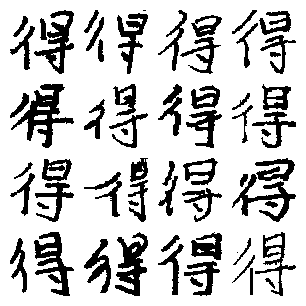 得得得得
得得得得
得得得得
得得得得